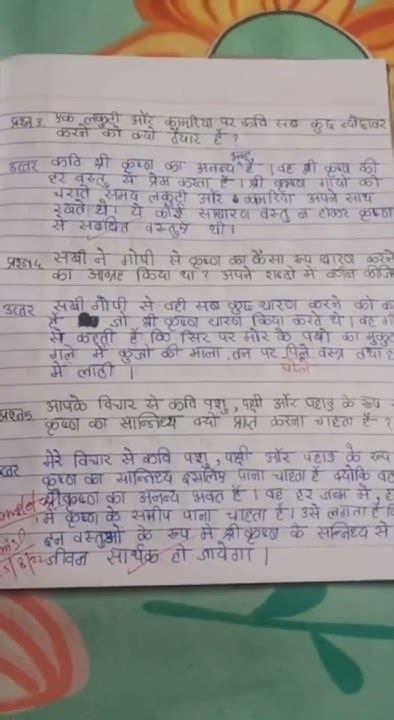 प्रश्न 3 एक लकुटी और कामरिया पर कवि सब कुछ न्योछावर
करने को क्यों तैयार है ?
उत्तर कवि श्री कृष्ण का अनन्य भक्त है । वह श्री कृष्ण की
हर वस्तु से प्रेम करता है । श्री कृष्ण गायों को
चराते समय लकुटी और कामरिया अपने साथ
रखते थे । ये कोई साधारण वस्तु न होकर कृष्ण
से सबंधित वस्तुएं थी ।
प्रश्न 4 सखी ने गोपी से कृष्ण का कैसा रूप धारण करने
का आग्रह किया था ? अपने शब्दो में वर्णन कीजि
उत्तर सखी गोपी से वही सब कुछ धारण करने को क
है जो श्री कृष्ण धारण किया करते थे । वह गो
से कहती है कि सिर पर मोर के पंखो का मुकुट
गले में कुंजो की माला, तन पर पिले वस्त्र तथा ह
पीले
में लाठी ।
प्रश्न 5 आपके विचार से कवि पशु, पक्षी और पहाड़ के रूप
कृष्ण का सान्निध्य क्यों प्राप्त करना चाहता है ?
त्तर मेरे विचार से कवि पशु, पक्षी और पहाड़ के रूप
कृष्ण का सान्निध्य इसलिए पाना चाहता है क्योंकि वह
श्रीकृष्ण का अनन्य भक्त है । वह हर जन्म में, ह
में कृष्ण के समीप पाना चाहता है । उसे लगता है कि
इन वस्तुओं के रूप में श्री कृष्ण के सन्निध्य से
जीवन सार्थक हो जायेगा ।